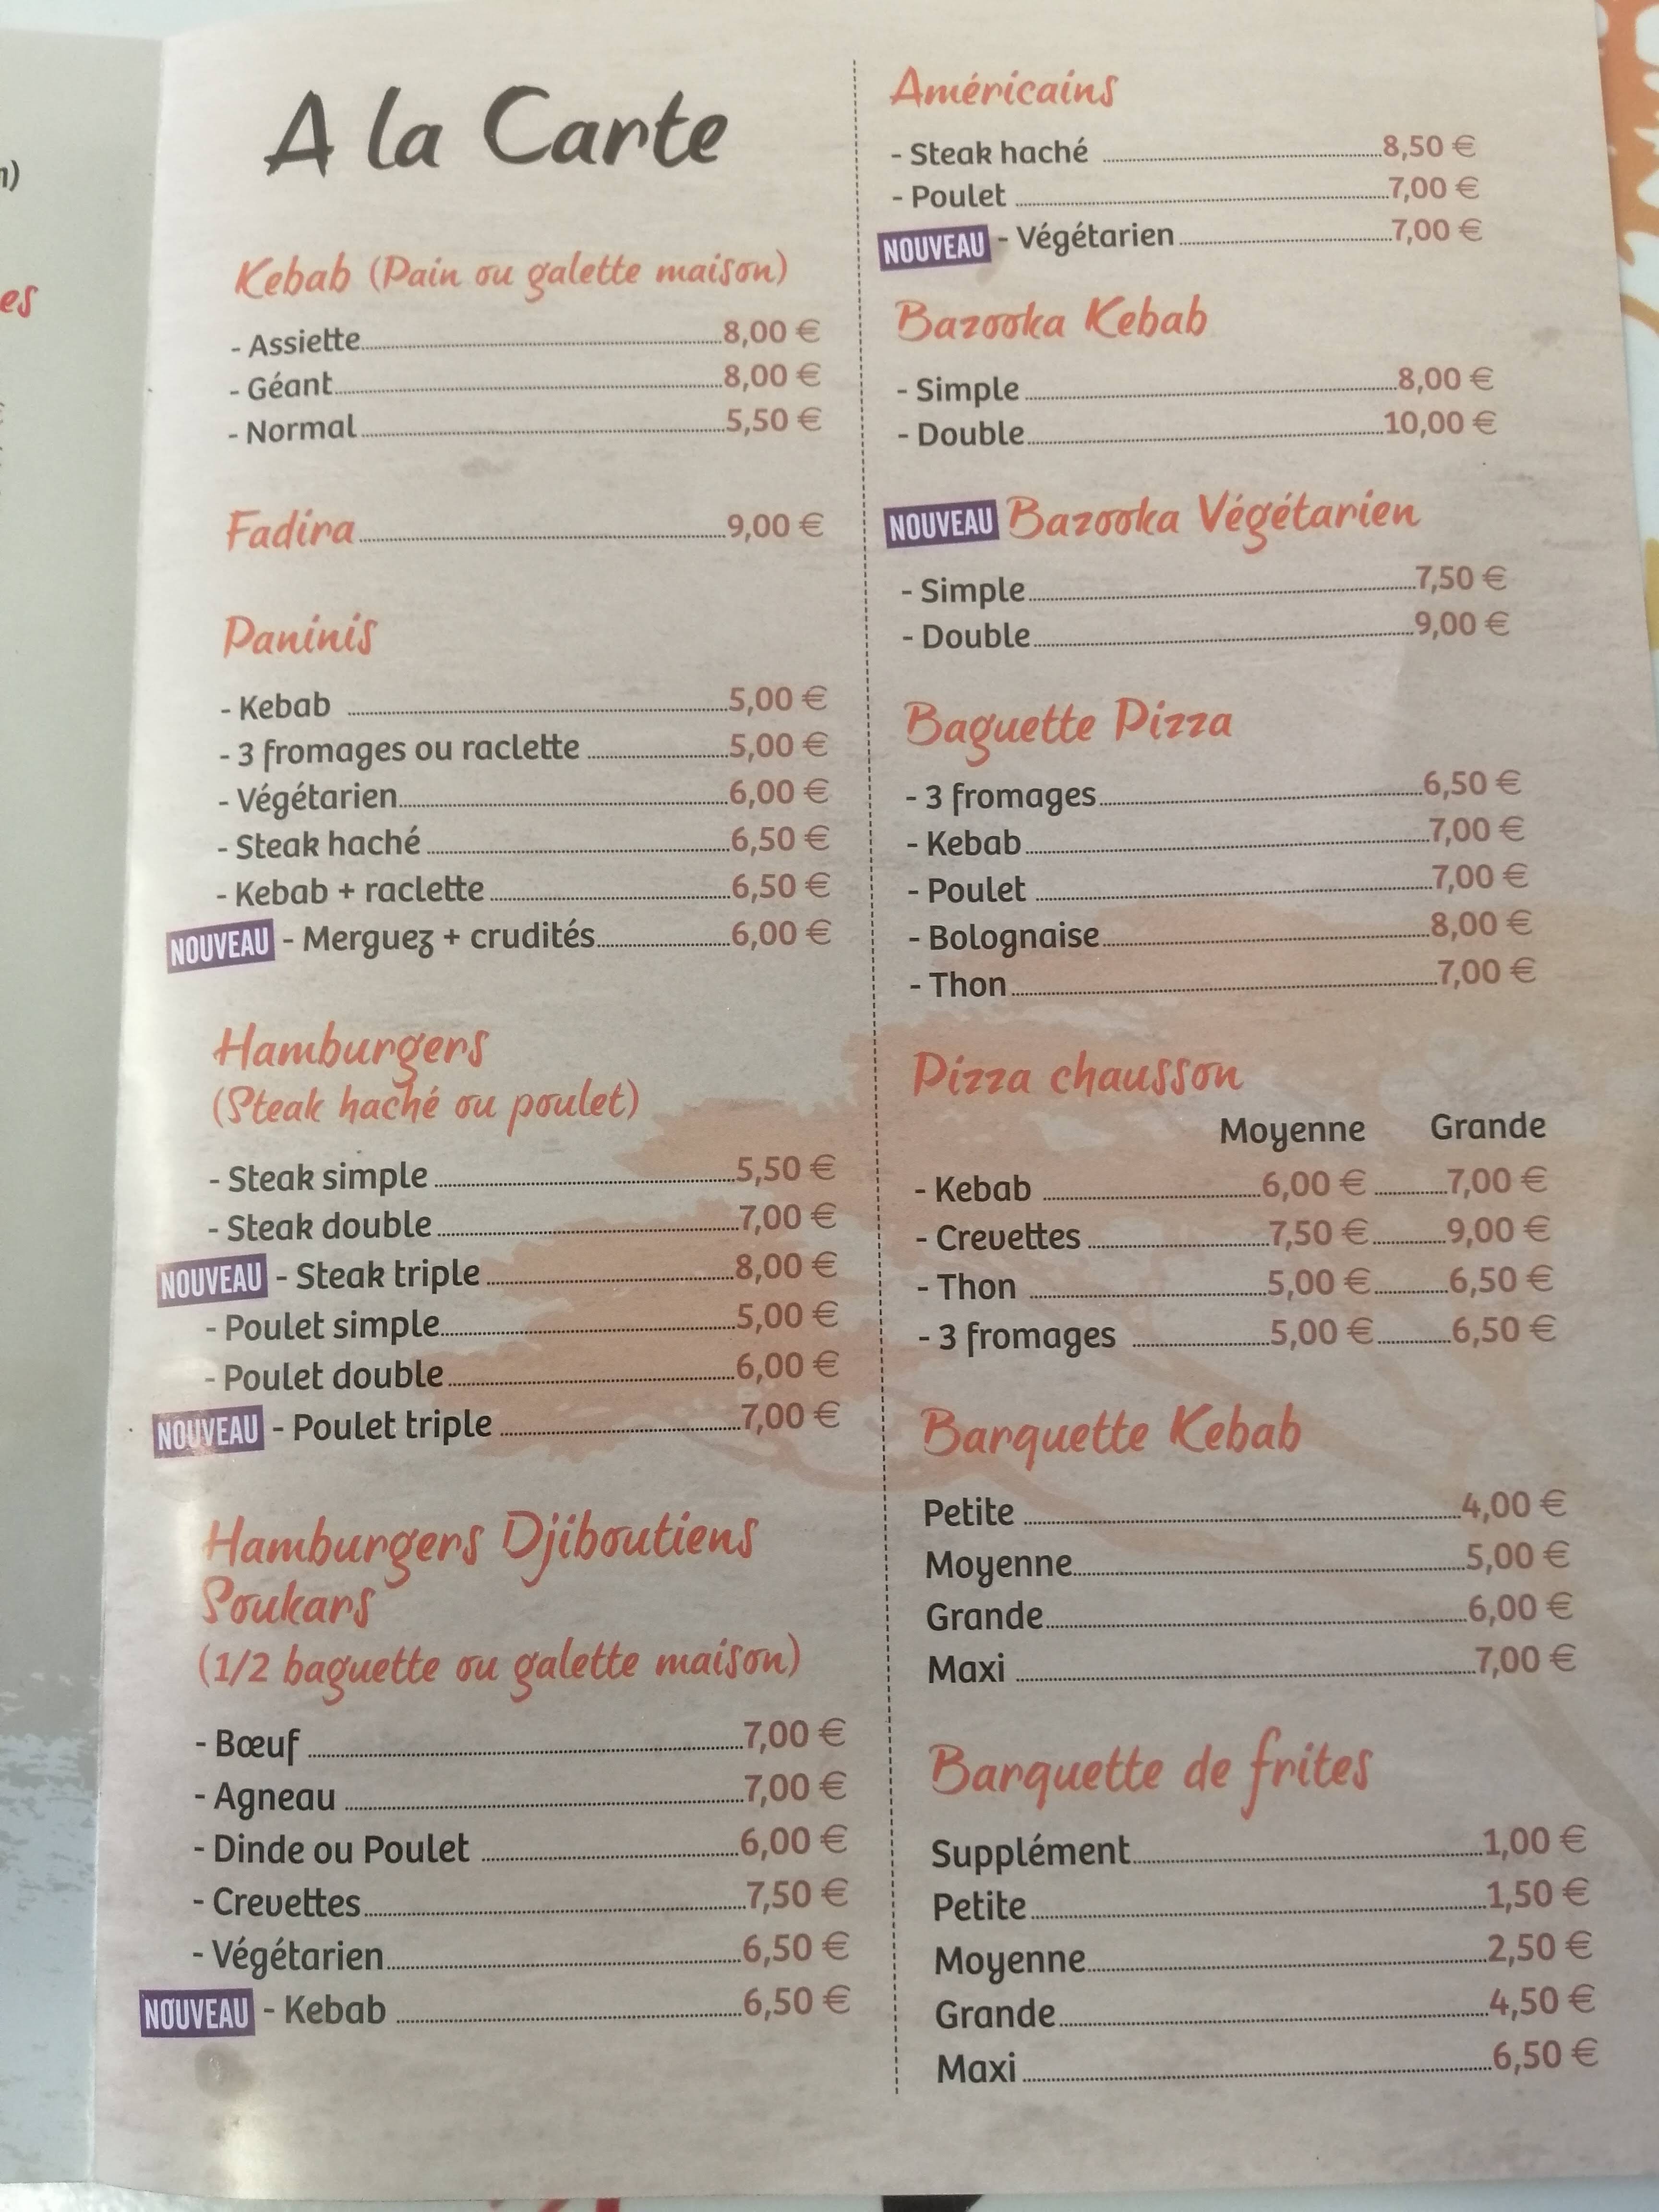 n)
es
A la Carte
Kebab (Pain ou galette maison)
- Assiette 8,00 €
- Géant 8,00 €
- Normal 5,50 €
Fadira 9,00 €
Paninis
- Kebab 5,00 €
- 3 fromages ou raclette 5,00 €
- Végétarien 6,00 €
- Steak haché 6,50 €
- Kebab + raclette 6,50 €
NOUVEAU - Merguez + crudités 6,00 €
Hamburgers
(Steak haché ou poulet)
- Steak simple 5,50 €
- Steak double 7,00 €
NOUVEAU - Steak triple 8,00 €
- Poulet simple 5,00 €
- Poulet double 6,00 €
NOUVEAU - Poulet triple 7,00 €
Hamburgers Djiboutiens
Soukars
(1/2 baguette ou galette maison)
- Bœuf 7,00 €
- Agneau 7,00 €
- Dinde ou Poulet 6,00 €
- Crevettes 7,50 €
- Végétarien 6,50 €
NOUVEAU - Kebab 6,50 €
Américains
- Steak haché 8,50 €
- Poulet 7,00 €
NOUVEAU - Végétarien 7,00 €
Bazooka Kebab
- Simple 8,00 €
- Double 10,00 €
NOUVEAU Bazooka Végétarien
- Simple 7,50 €
- Double 9,00 €
Baguette Pizza
- 3 fromages 6,50 €
- Kebab 7,00 €
- Poulet 7,00 €
- Bolognaise 8,00 €
- Thon 7,00 €
Pizza chausson
Moyenne Grande
- Kebab 6,00 € 7,00 €
- Crevettes 7,50 € 9,00 €
- Thon 5,00 € 6,50 €
- 3 fromages 5,00 € 6,50 €
Barquette Kebab
Petite 4,00 €
Moyenne 5,00 €
Grande 6,00 €
Maxi 7,00 €
Barquette de frites
Supplément 1,00 €
Petite 1,50 €
Moyenne 2,50 €
Grande 4,50 €
Maxi 6,50 €